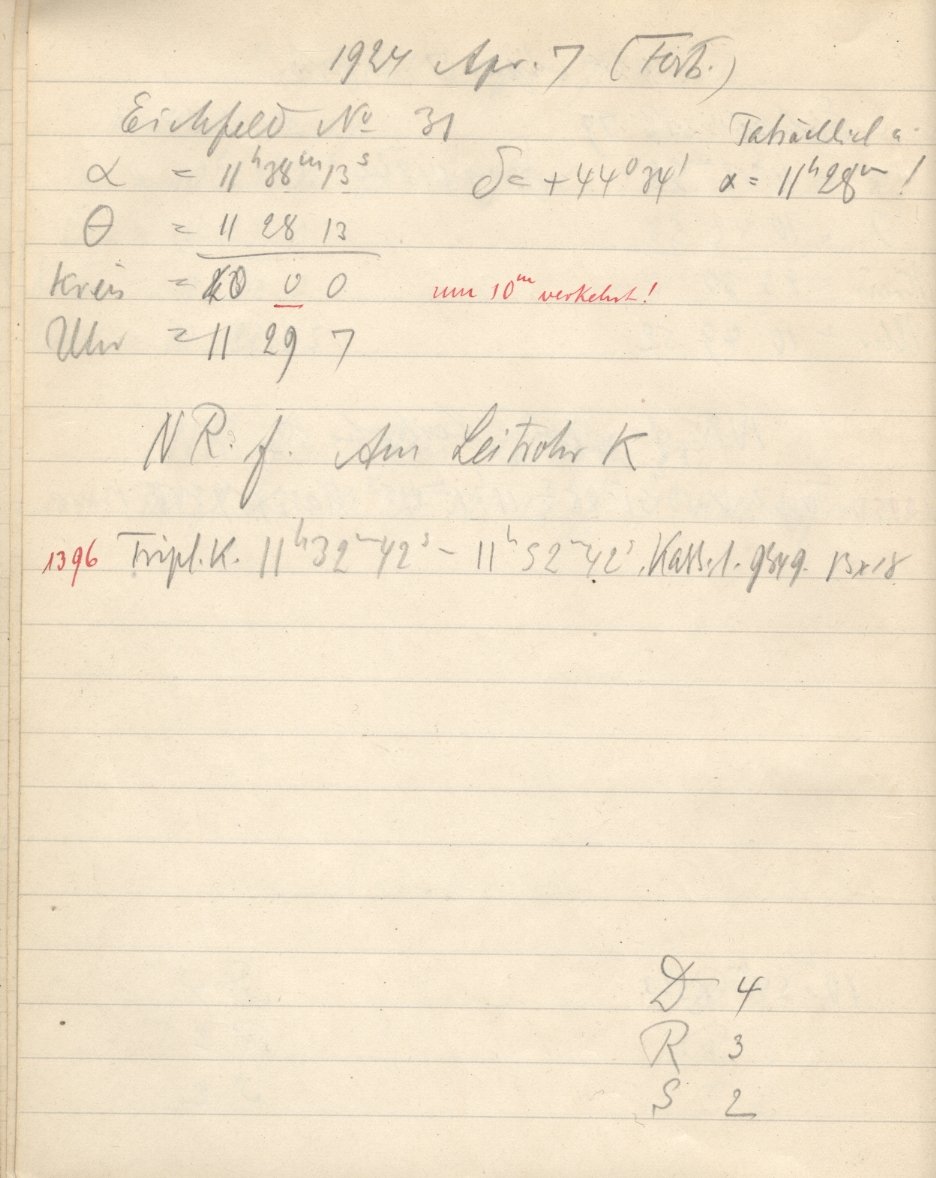 1924 Apr. 7 (Forts.)
Eichfeld No 31
Tatsächlich
α = 11h38m13s δ = +44°34' α = 11h28m!
θ = 11 28 13
Kreis = 0 0 um 10m verkehrt!
Uhr = 11 29 7
NR. f. Am Leitrohr K
1396 Tripl.K. 11h32m42s – 11h52m42s, Kass.1. 9x9. 13x18
D 4
R 3
S 2